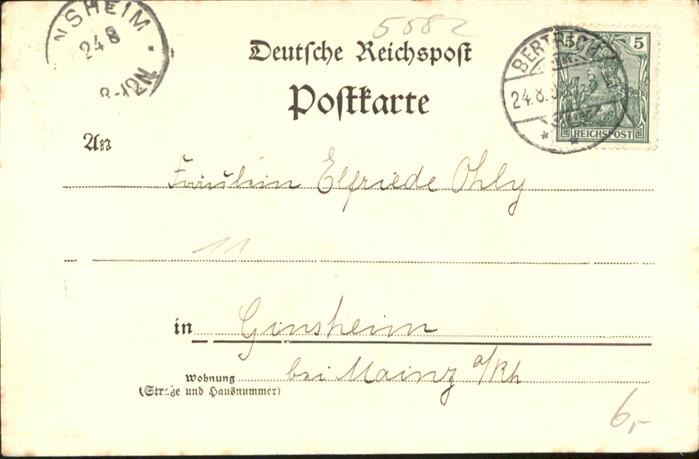 5882
NSHEIM
24 8
8-12N
Deutsche Reichspost
Postkarte
BERTRICH
24.8.
5 5
REICHSPOST
An
Fräulein Elfriede Ohly
11
in Ginsheim
bei Mainz a/Rh
Wohnung
(Straße und Hausnummer)
6,-